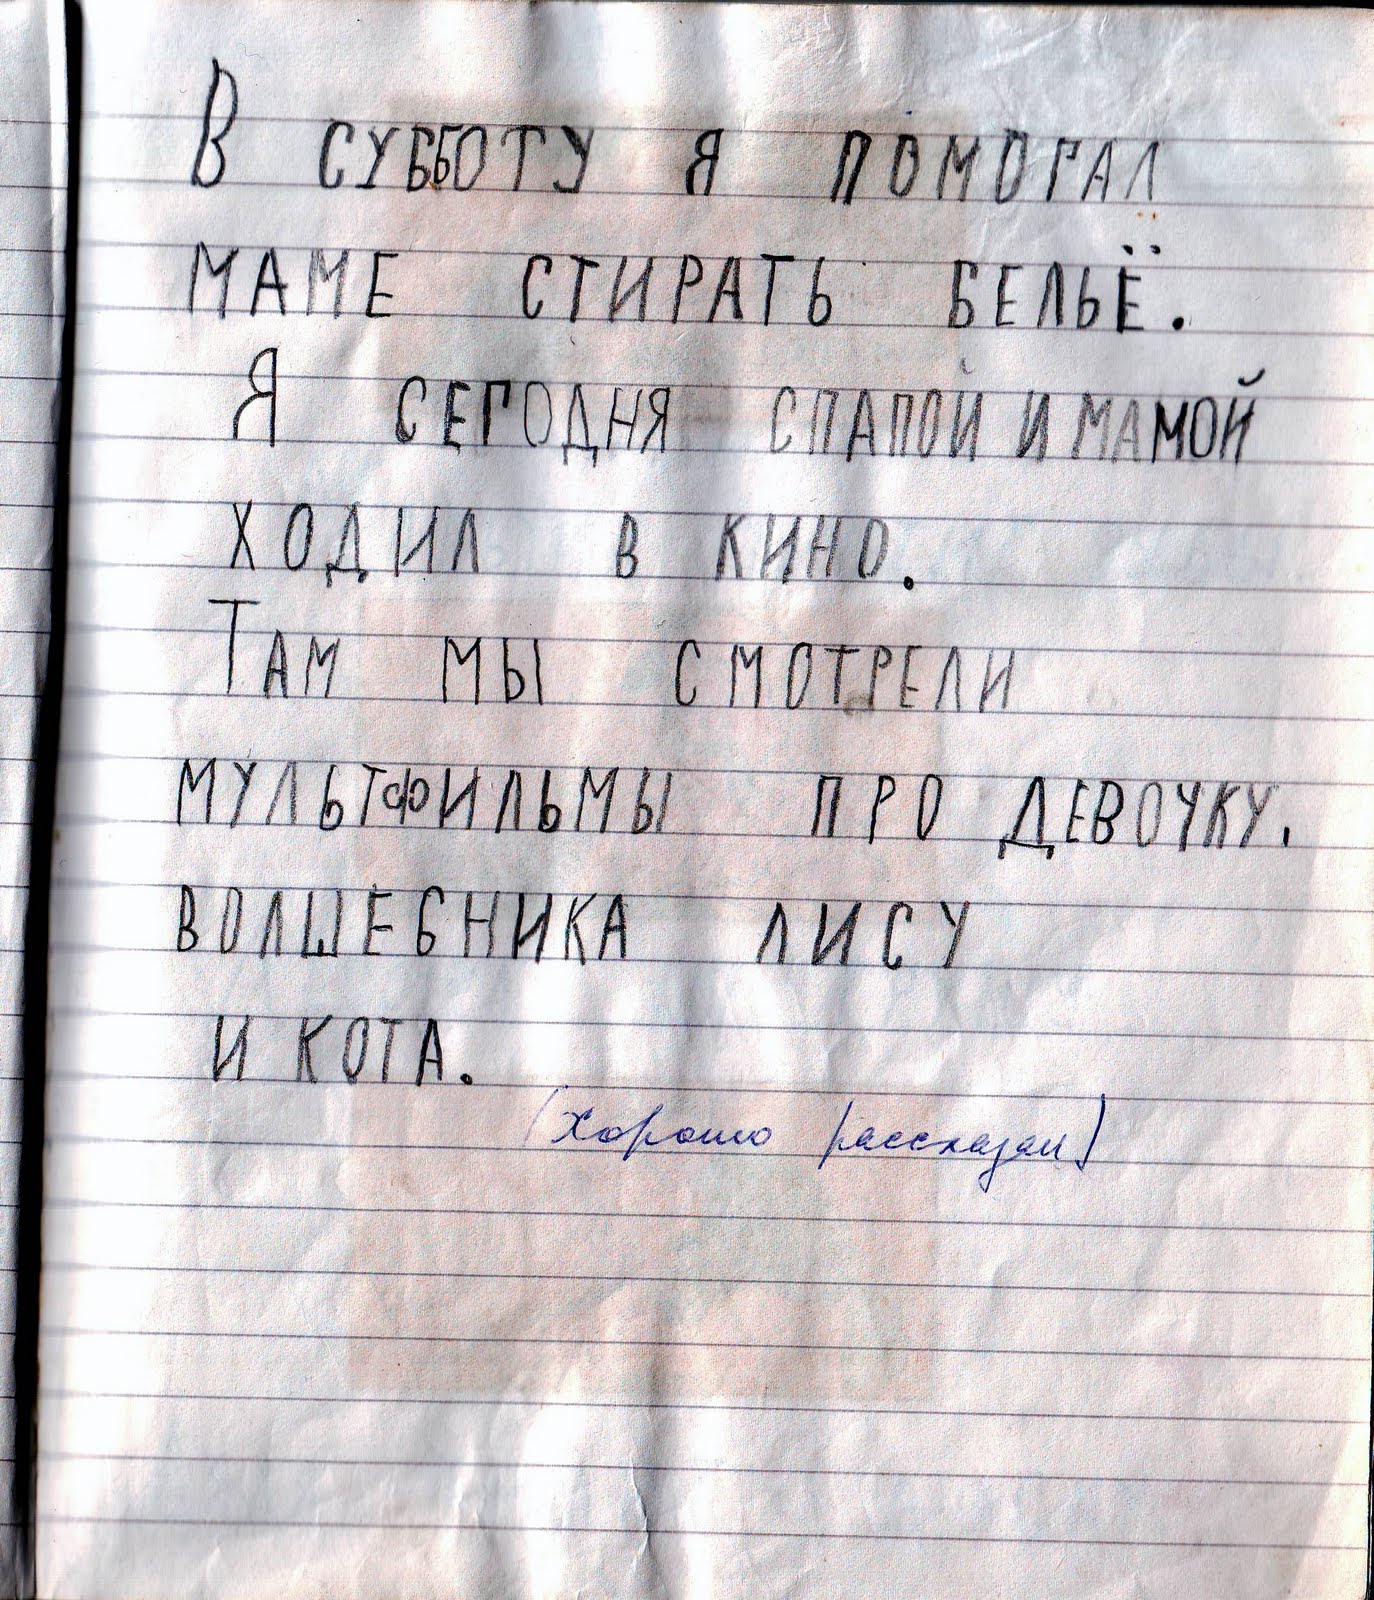 В СУББОТУ Я ПОМОГАЛ
МАМЕ СТИРАТЬ БЕЛЬЁ.
Я СЕГОДНЯ СПАПОЙ И МАМОЙ
ХОДИЛ В КИНО.
ТАМ МЫ СМОТРЕЛИ
МУЛЬТФИЛЬМЫ ПРО ДЕВОЧКУ.
ВОЛШЕБНИКА ЛИСУ
И КОТА.
(хорошо рассказал)